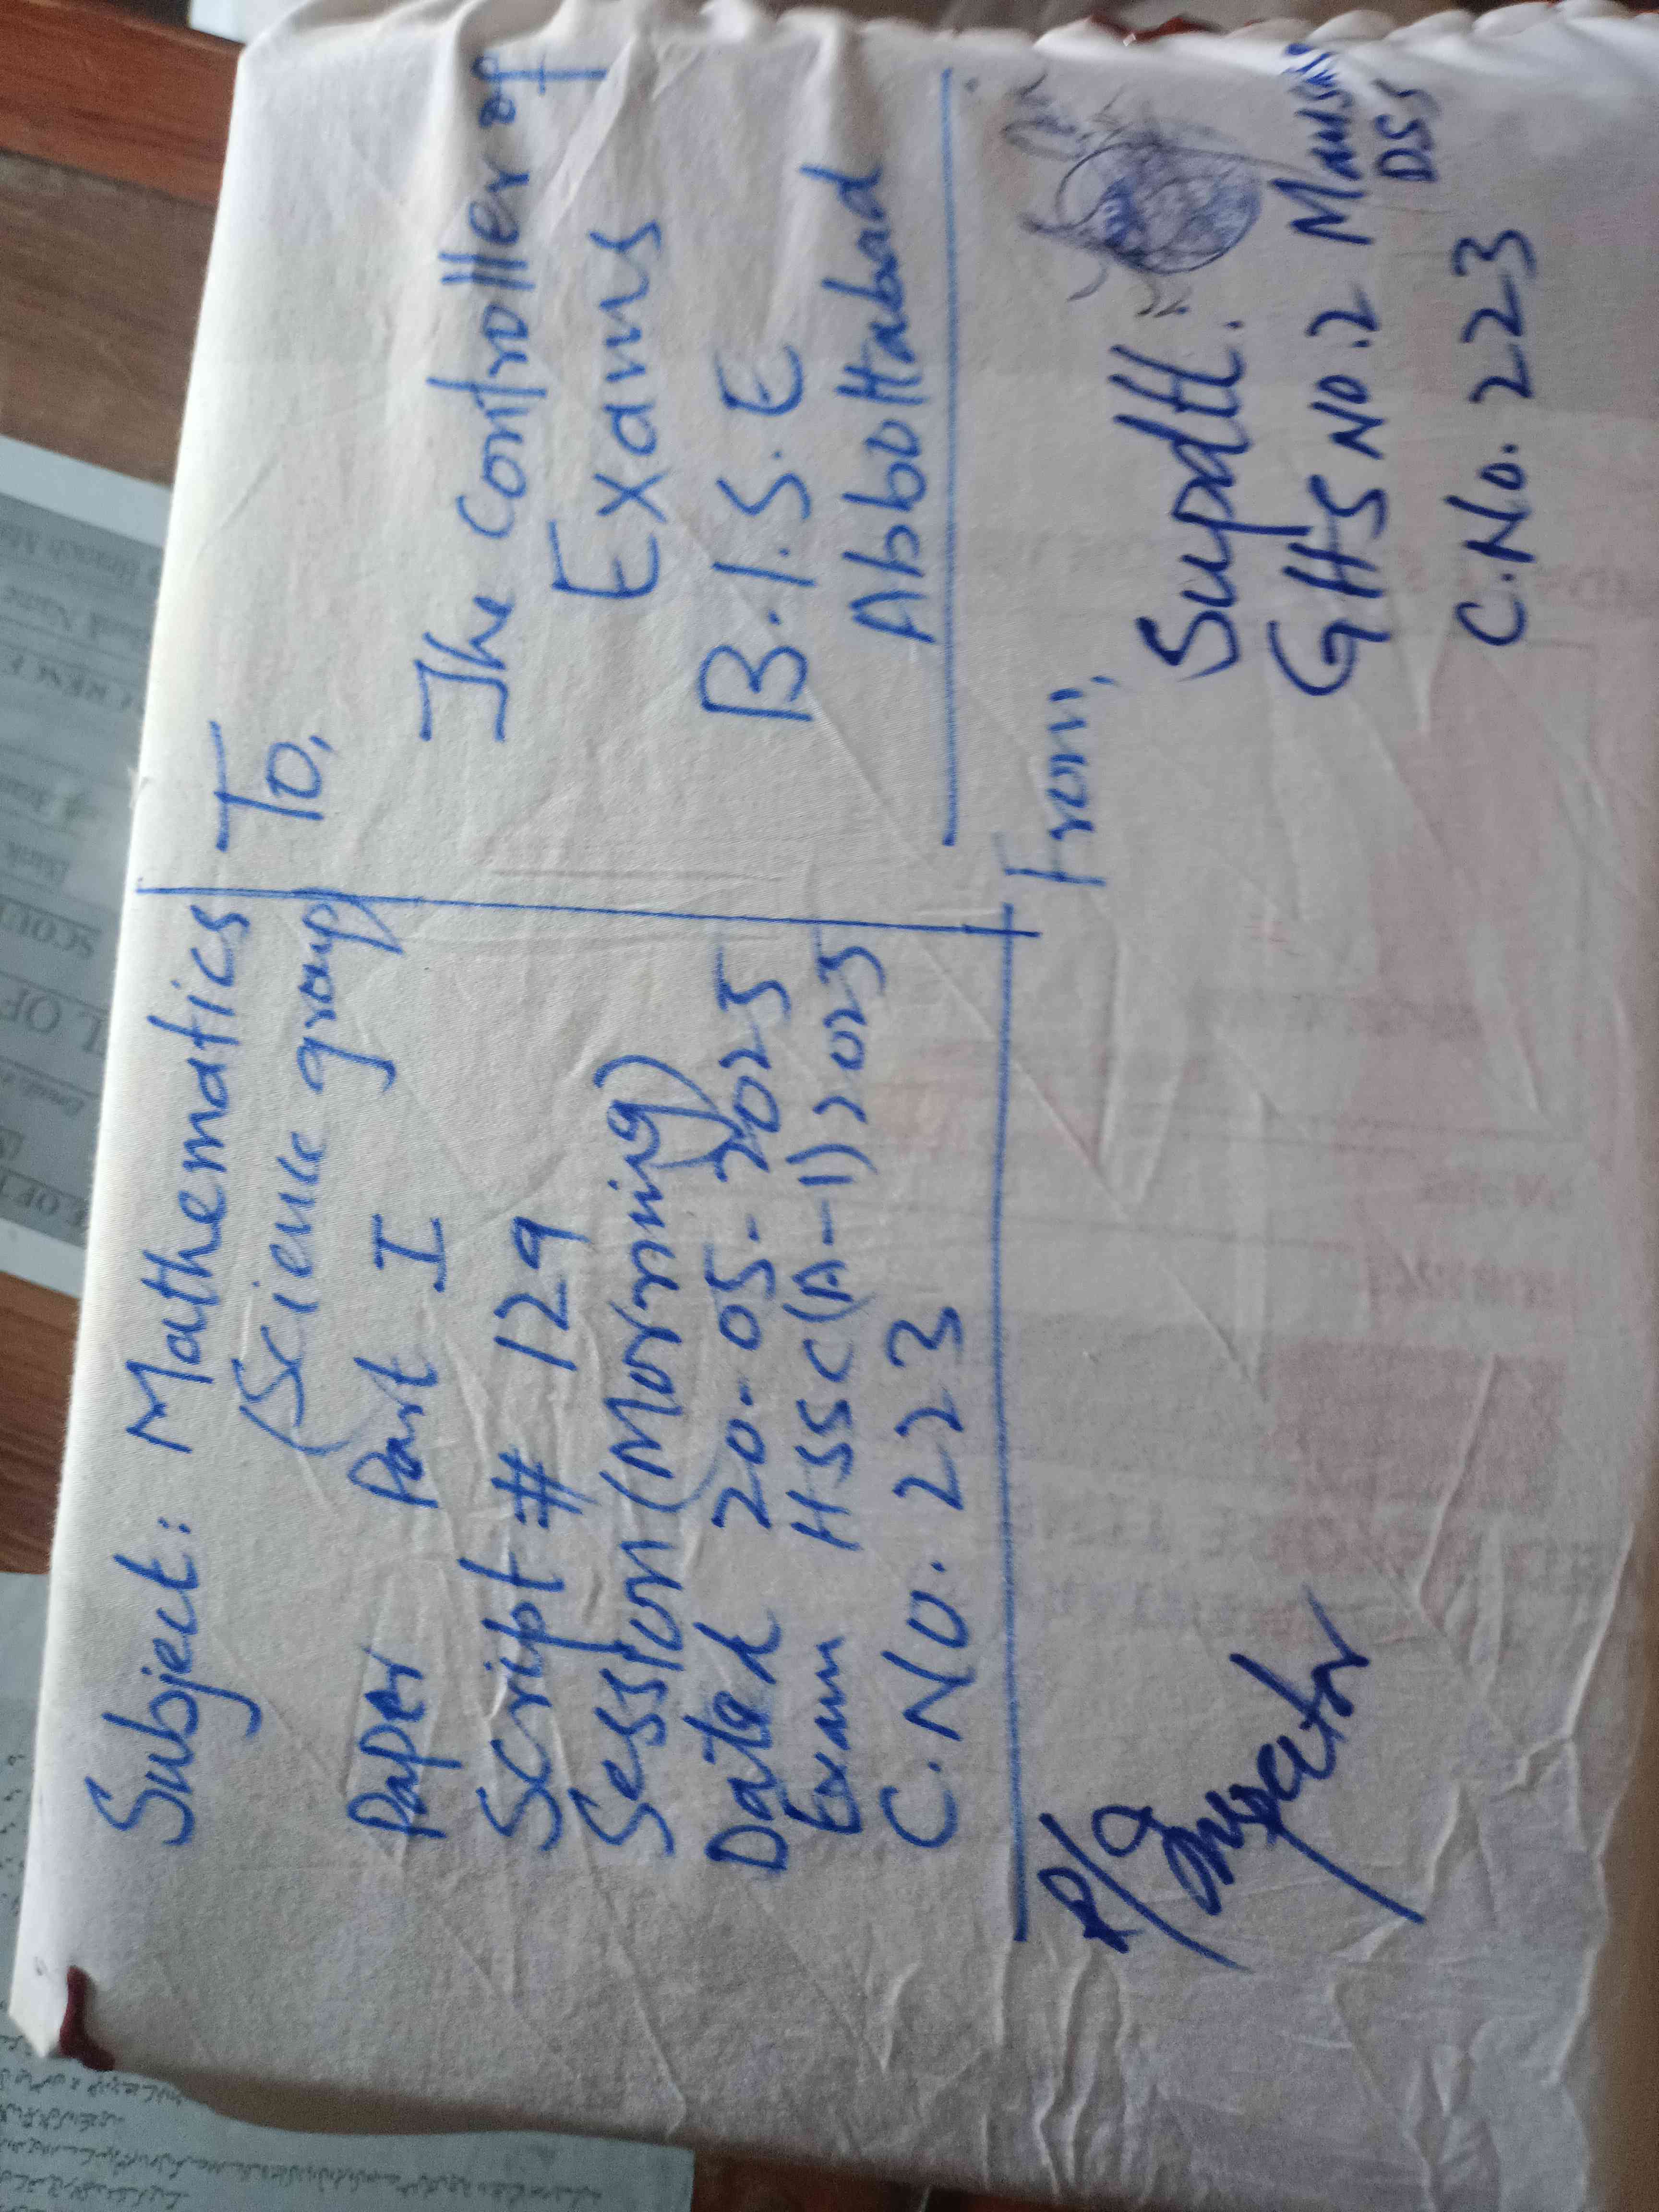 Subject: Mathematics
(Science group)
Paper Part I
Script # 129
Session (Morning)
Dated 20-05-2025
Exam HSSC(A-1) 2025
C.No. 223
To,
The Controller of
Exams
B.I.S.E
Abbottabad
From,
Supdtt.
GHS No.2
DSS
C.No. 223
R/
Inspector